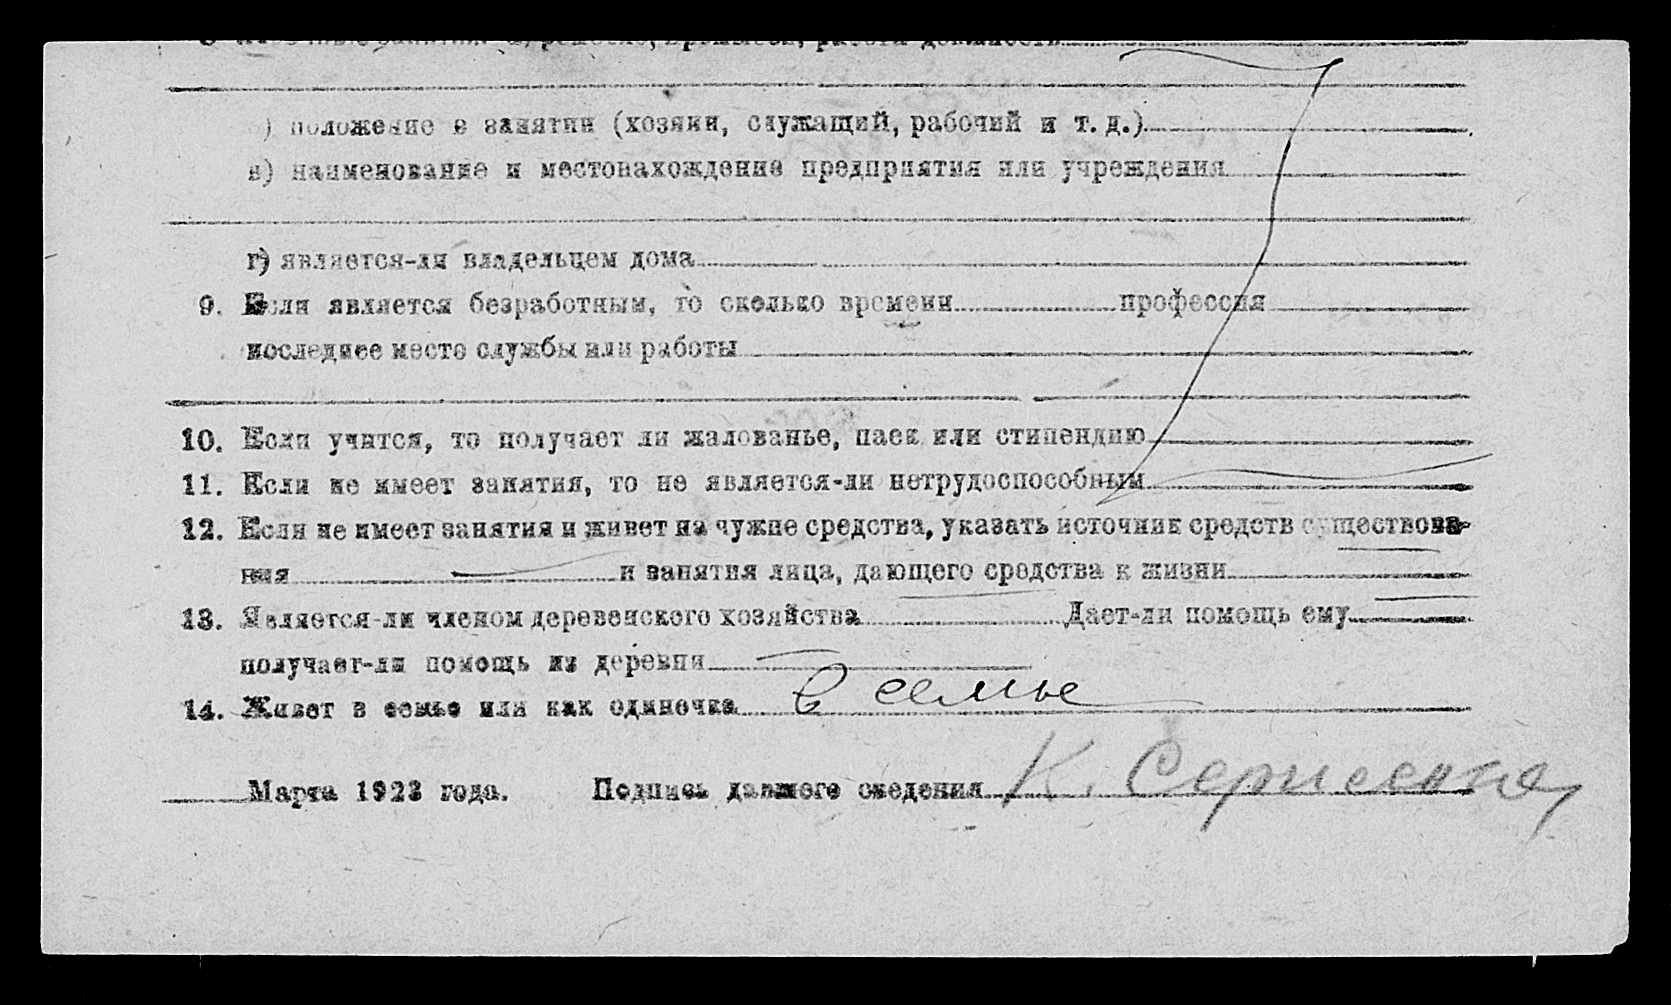 занятия: ремесло, промысел, работа должность
) положение в занятии (хозяин, служащий, рабочий и т. д.)
в) наименование и местонахождение предприятия или учреждения
г) является-ли владельцем дома
9. Если является безработным, то сколько времени профессия
последнее место службы или работы
10. Если учится, то получает ли жалованье, паек или стипендию
11. Если не имеет занятия, то не является-ли нетрудоспособным
12. Если не имеет занятия и живет на чужие средства, указать источник средств существова-
ния — и занятия лица, дающего средства к жизни
13. Является-ли членом деревенского хозяйства Дает-ли помощь ему
получает-ли помощь из деревни
14. Живет в семье или как одиночка в семье
Марта 1923 года. Подпись давшего сведения К.